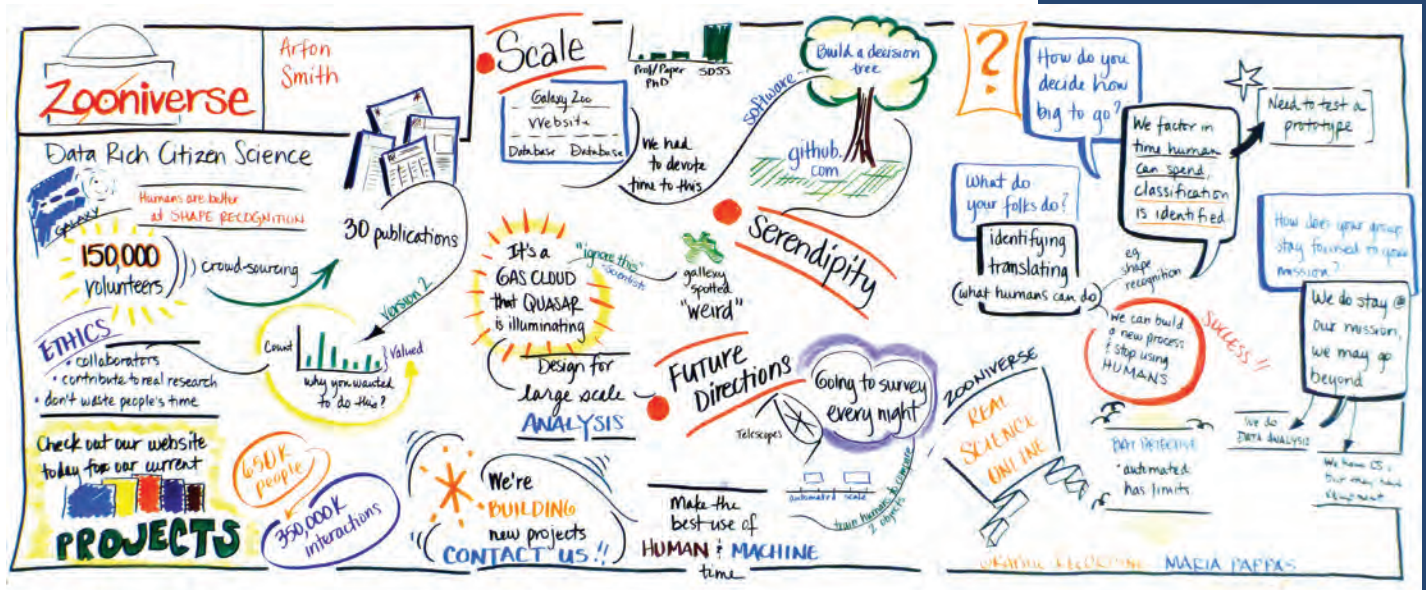 Zooniverse
Arfon
Smith
Data Rich Citizen Science
GALAXY
Humans are better
at SHAPE RECOGNITION
150,000
volunteers
crowd-sourcing
30 publications
Version 2
ETHICS
• collaborators
• contribute to real research
• don't waste people's time
Count
Valued
why you wanted
to do this?
Check out our website
today for our current
PROJECTS
650K
people
350,000K
interactions
Scale
Prof/Paper
PhD
SDSS
Galaxy Zoo
Website
Database Database
We had
to devote
time to this
software
Build a decision
tree
github.
com
Serendipity
It's a
GAS CLOUD
that QUASAR
is illuminating
"ignore this"
-scientists
gallexy
spotted
"weird"
Design for
large scale
ANALYSIS
Future
Directions
Telescopes
Going to survey
every night
automated scale
train humans to compare
2 objects
We're
• BUILDING
new projects
CONTACT US!!
Make the
best use of
HUMAN & MACHINE
time
?
How do you
decide how
big to go?
We factor in
time human
can spend,
classification
is identified
Need to test a
prototype
What do
your folks do?
identifying
translating
(what humans can do)
eg
shape
recognition
we can build
a new process
& stop using
HUMANS
SUCCESS!!
How does your group
stay focused to your
mission?
We do stay @
our mission,
we may go
beyond
We do
DATA ANALYSIS
We have CS,
ZOONIVERSE
REAL
SCIENCE
ONLINE
BAT DETECTIVE
• automated
has limits
GRAPHIC RECORDING MARIA PAPPAS